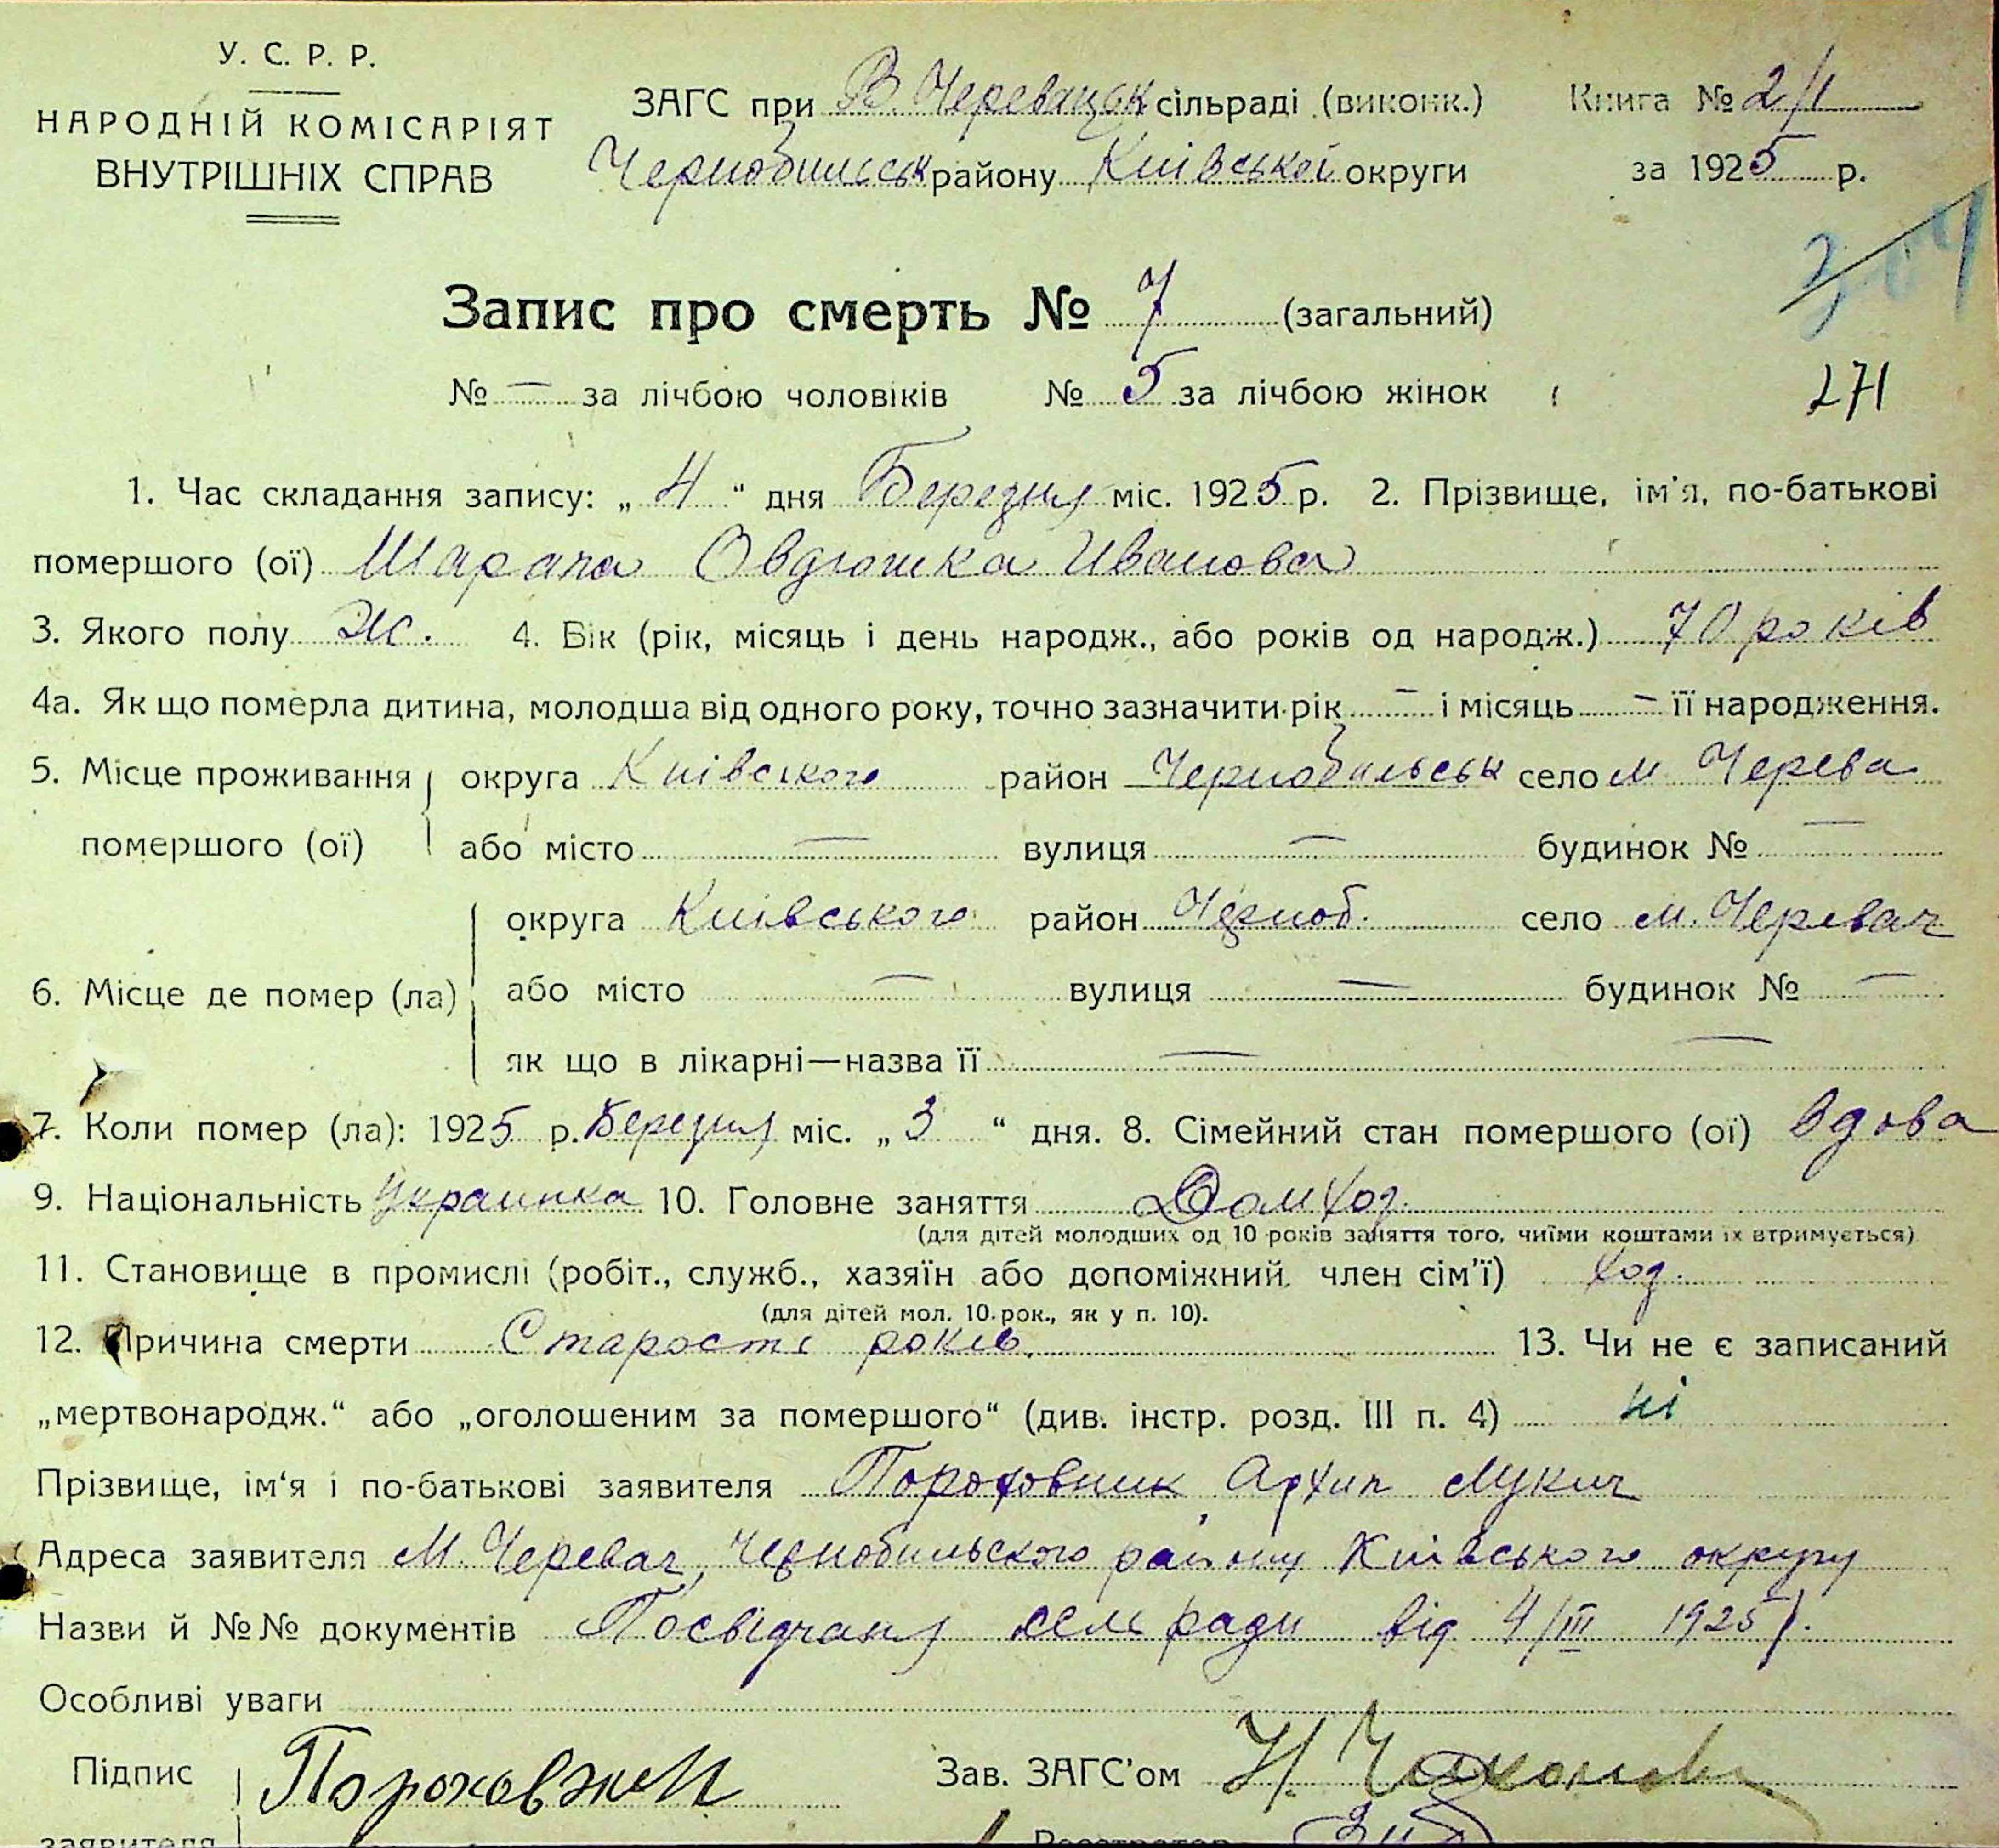 У. С. Р. Р.
НАРОДНІЙ КОМІСАРІЯТ
ВНУТРІШНІХ СПРАВ
ЗАГС при В. Черевацьк сільраді (виконк.)
Чернобильськ району Київської округи
Книга № 2/1
за 1925 р.
Запис про смерть № 7 (загальний)
№ — за лічбою чоловіків № 5 за лічбою жінок
271
1. Час складання запису: „ 4 “ дня Березня міс. 1925 р. 2. Прізвище, ім'я, по-батькові
помершого (ої) Шарапа Овдюшка Иванова
3. Якого полу Ж. 4. Вік (рік, місяць і день народж., або років од народж.) 70 років
4а. Як що померла дитина, молодша від одного року, точно зазначити рік — і місяць — її народження.
5. Місце проживання округа Київского район Чернобильськ село м Черева
помершого (ої) або місто — вулиця — будинок № —
округа Київського район Черноб. село м. Черевач
6. Місце де помер (ла) або місто — вулиця — будинок № —
як що в лікарні—назва її — —
7. Коли помер (ла): 1925 р. Березня міс. „ 3 “ дня. 8. Сімейний стан помершого (ої) вдова
9. Національність Украинка 10. Головне заняття Дом хоз.
(для дітей молодших од 10 років заняття того, чиїми коштами їх втримується)
11. Становище в промислі (робіт., служб., хазяїн або допоміжний член сім'ї) хоз.
(для дітей мол. 10 рок., як у п. 10).
12. Причина смерти Старость років. 13. Чи не є записаний
„мертвонародж.“ або „оголошеним за помершого“ (див. інстр. розд. III п. 4) ні
Прізвище, ім'я і по-батькові заявителя Пороховник Архип Лукич
Адреса заявителя М. Черевач, Чернобильского району Київського округу
Назви й №№ документів Посвідчання сель ради від 4/III 1925 р.
Особливі уваги
Підпис Пороховник Зав. ЗАГС'ом
заявителя Реєстратор